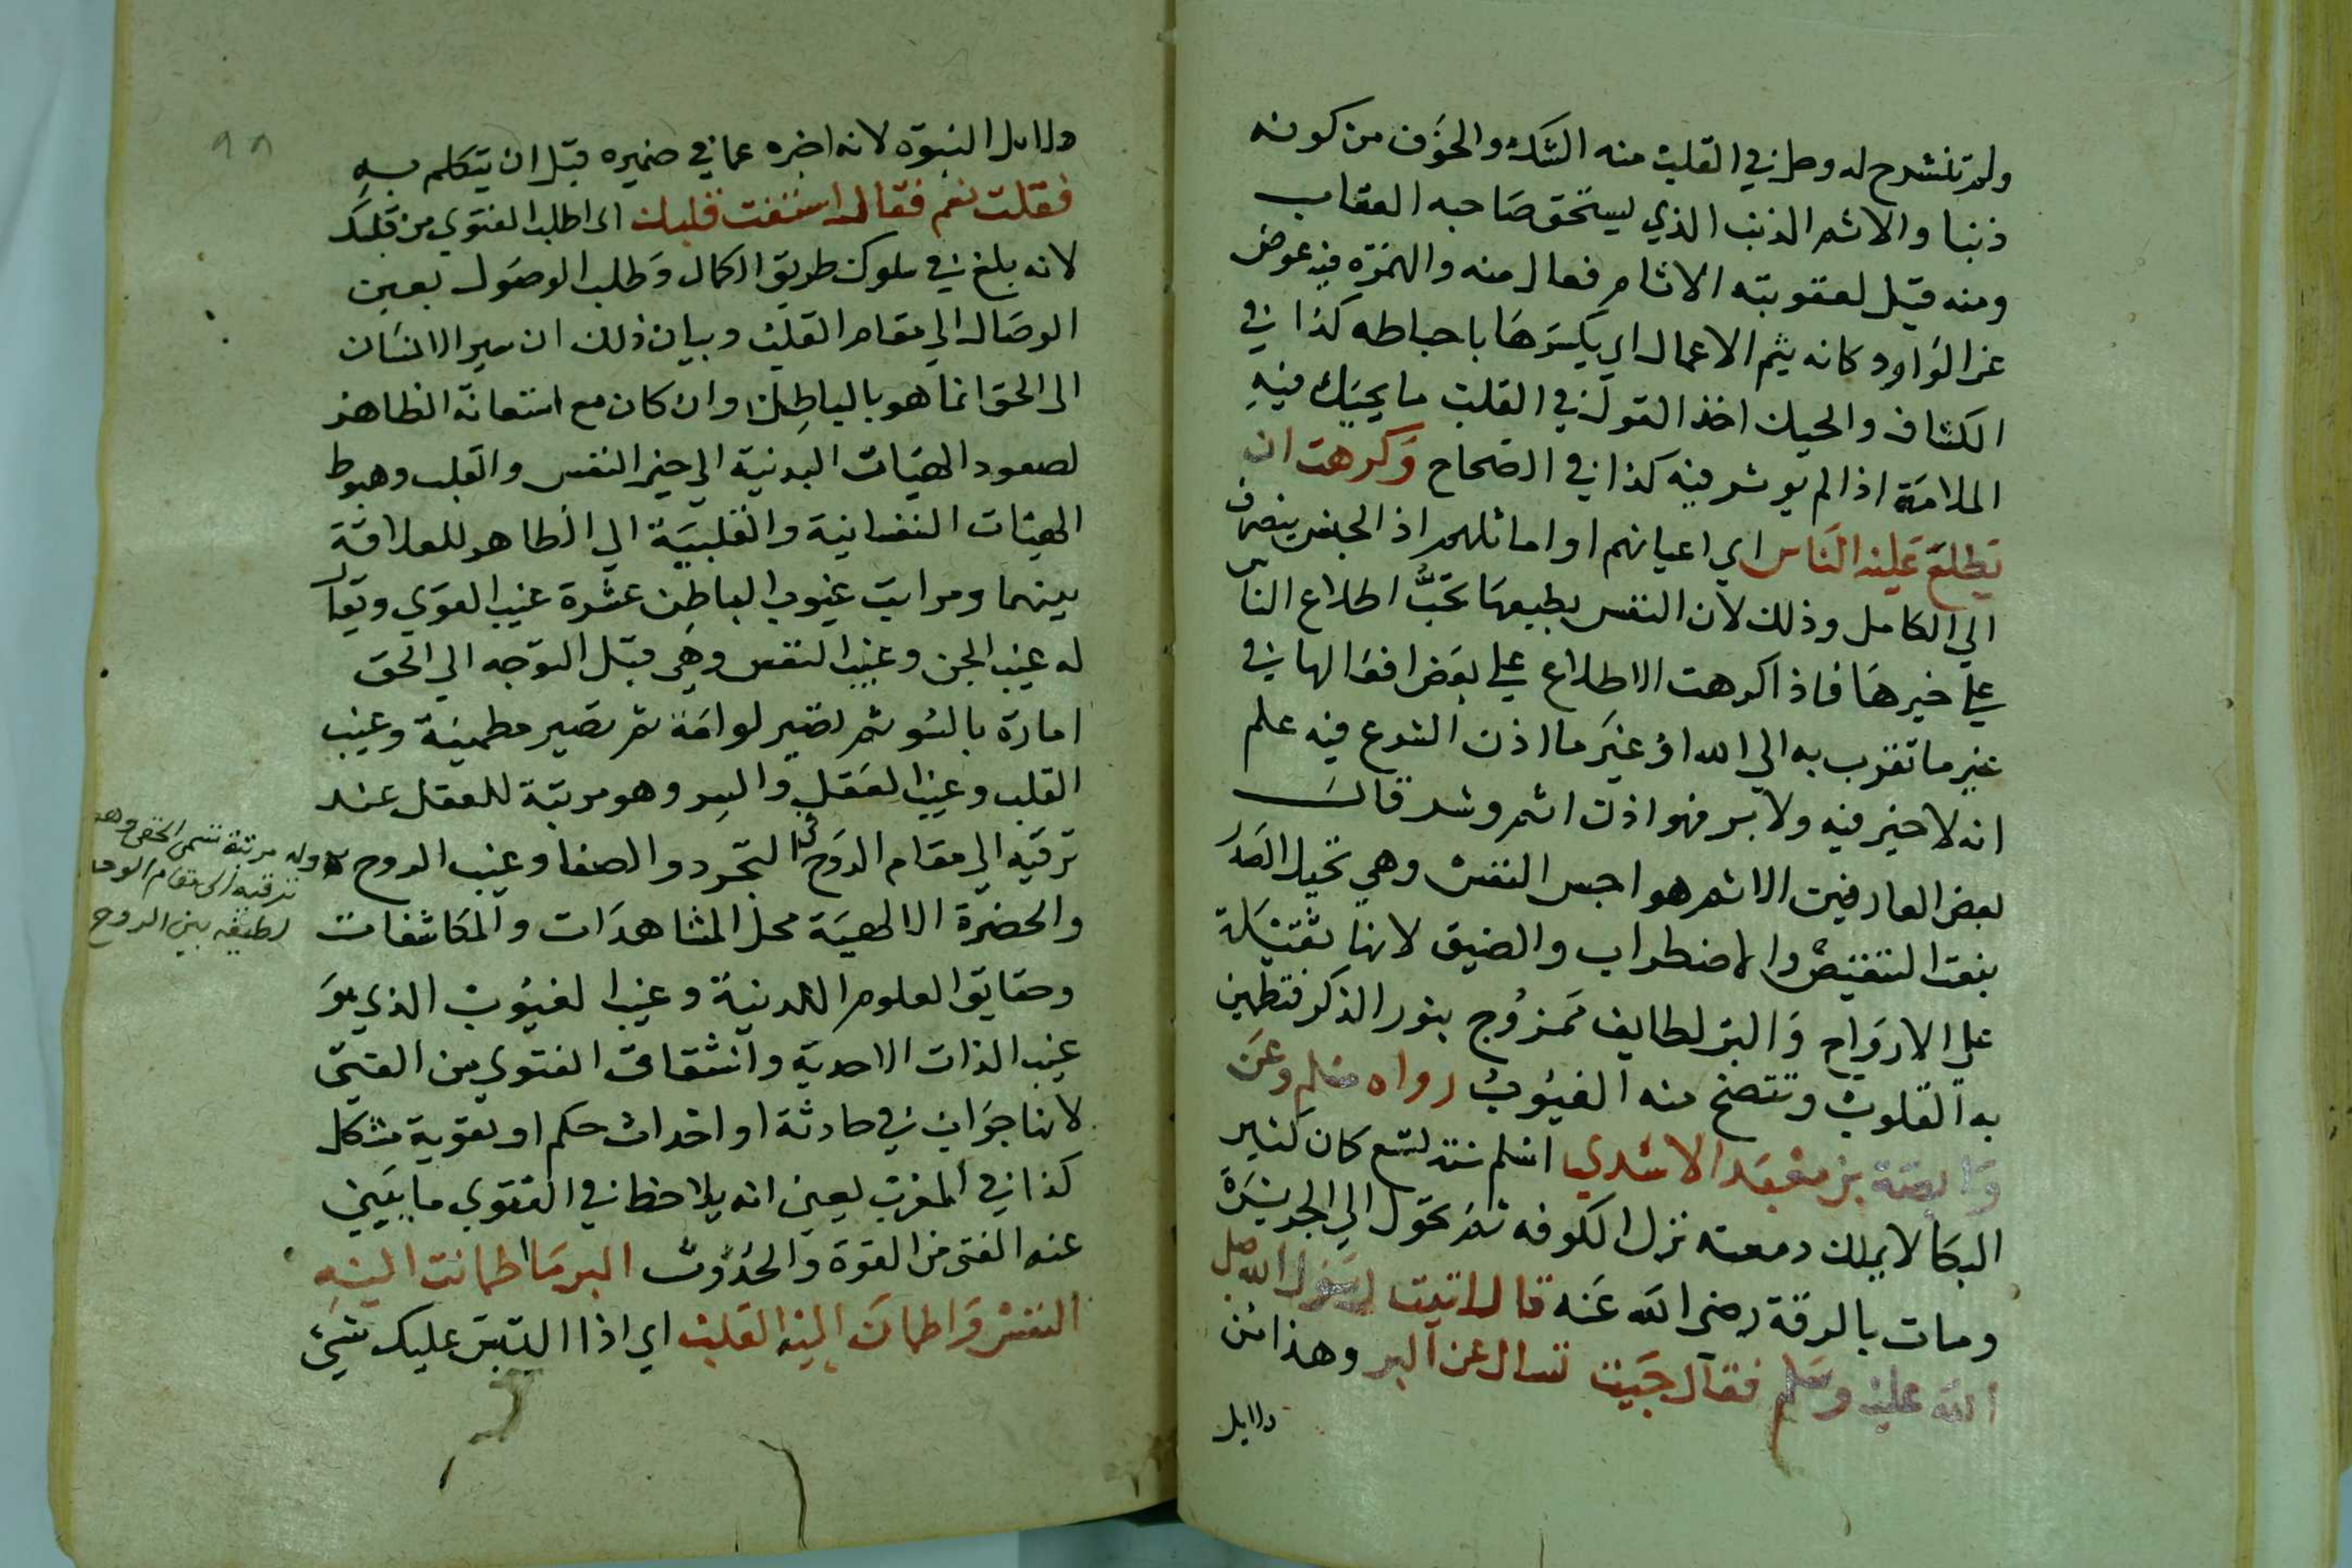 ولم تنشرح له وحل في القلب منه الشك والخوف من كونه
ذنبا والاثم الذنب الذي يستحق صاحبه العقاب
ومنه قيل لعقوبته الاثام فعال منه والهمزة فيه عوض
عن الواو وكانه يثم الاعمال اي يكسرها باحباطه كذا في
الكشاف والحيك اخذ القول في القلب ما يحيك فيه
الملامة اذا لم يوثر فيه كذا في الصحاح وكرهت ان
يطلع عليه الناس اي اعيانهم او اماثلهم اذ الجنس ينصرف
الي الكامل وذلك لان النفس بطبعها تحب اطلاع الناس
علي خيرها فاذا كرهت الاطلاع علي بعض افعالها في
غير ما تقرب به الي الله او غير ما اذن الشرع فيه علم
انه لا خير فيه ولا بر فهو اذن اثم وشر قال
بعض العارفين الاثم هواجس النفس وهي تحيك الصدر
بنعت التنغيص والاضطراب والضيق لانها ثقيلة
علي الارواح والبر لطايف ممزوج بنور الذكر فتطمين
به القلوب وتتضح منه الغيوب رواه مسلم وعن
وابصة بن معبد الاسدي اسلم سنة تسع كان كثير
البكا لا يملك دمعته نزل الكوفه ثم تحول الي الجزيرة
ومات بالرقة رضي الله عنه قال اتيت رسول الله صل
الله عليه وسلم فقال جيت تسال عن البر وهذا من
دلايل
دلايل النبوة لانه اخبره عما في ضميره قبل ان يتكلم به
فقلت نعم فقال استفت قلبك اي اطلب الفتوي من قلبك
لانه بلغ في سلوك طريق الكمال وطلب الوصول بعين
الوصال الي مقام القلب وبيان ذلك ان سير الانسان
الي الحق انما هو بالباطن وان كان مع استعانة الظاهر
لصعود الهيات البدنية الي حيز النفس والقلب وهبوط
الهيئات النفسانية والقلبية الي الظاهر للعلاقة
بينهما ومراتب غيوب الباطن عشرة غيب القوي ويقال
له غيب الجن وغيب النفس وهي قبل التوجه الي الحق
امارة بالسو ثم تصير لوامة ثم تصير مطمينة وغيب
القلب وغيب العقل والسر وهو مرتبة للعقل عند
ترقيه الي مقام الروح في التجرد والصفا وغيب الروح
وله مرتبة تسمي الخفي وهو
ترقيه الي مقام الوحد
لطيفه بين الروح
والحضرة الالهية محل المشاهدات والمكاشفات
وحقايق العلوم اللدنية وغيب الغيوب الذي هو
غيب الذات الاحدية وانشقاق الفتوي من الفتي
لانها جواب في حادثة او احداث حكم او تقوية مشكل
كذا في المغرب يعين انه يلاحظ في الفتوي ما يبين
عنه الفتي من القوة والحدوث البر ما اطمانت اليه
النفس واطمان اليه القلب اي اذا التبس عليك شي